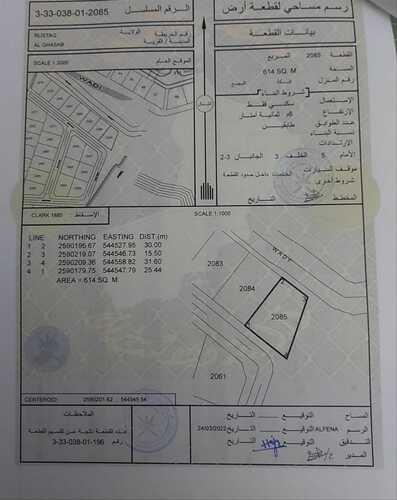 رسم مساحي لقطعة أرض
الرقم المسلسل 3-33-038-01-2085
بيانات القطعة
الولاية RUSTAQ
رقم الخريطة
المدينة / القرية AL GHASAB
القطعة 2085 المربع
المساحة 614 SQ. M
رقم المنزل السكة المجمع
الموقع العام SCALE 1:2000
WADI
شمال
شروط البناء
الإستعمال سكني فقط
الإرتفاع ثمانية امتار
عدد الطوابق طابقين
نسبة البناء
الإرتدادات
الأمام 5 الخلف 3 الجانبان 2-3
موقف للسيارات
شروط أخرى
الخدمات داخل حدود القطعة
المخطط التاريخ
CLARK 1880 الإسقاط
SCALE 1:1000
LINE NORTHING EASTING DIST.(m)
1 2 2590195.67 544527.95 30.00
2 3 2590219.07 544546.73 15.50
3 4 2590209.36 544558.82 31.60
4 1 2590179.75 544547.79 25.44
AREA = 614 SQ. M.
WADY
2083
2084
2085
2061
CENTEROID:
الملاحظات
رقم 3-33-038-01-196
المساح التوقيع التاريخ
الرسم ALFENA التوقيع التاريخ 24/03/2022
التدقيق التوقيع التاريخ
المدير التاريخ